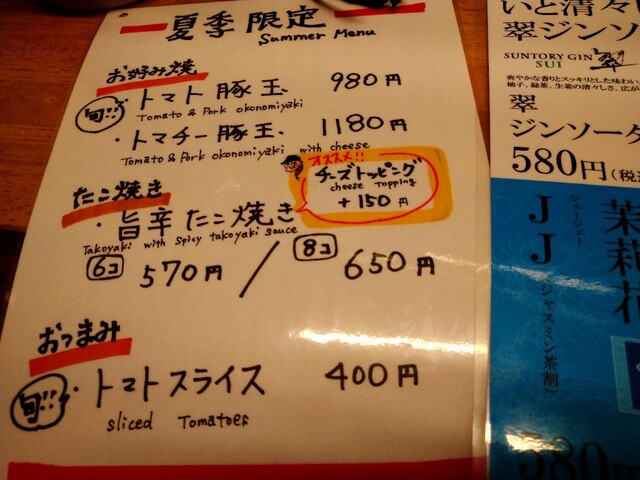 夏季限定
Summer Menu
お好み焼
旬!!
・トマト豚玉 980円
Tomato & Pork okonomiyaki
・トマチー豚玉 1180円
Tomato & Pork okonomiyaki with cheese
オススメ!!
チーズトッピング
cheese topping
+150円
たこ焼き
・旨辛たこ焼き
Takoyaki with spicy takoyaki sauce
6コ 570円 / 8コ 650円
おつまみ
旬!!
・トマトスライス 400円
sliced Tomatoes
いと清々
翠ジンソ
SUNTORY GIN
SUI
翠
爽やかな香りとスッキリとした味わい
柚子、緑茶、生姜の清々しさ、広が
翠
ジンソーダ
580円(税込
茉莉花
ジェージェー
JJ
(ジャスミン茶割)
580円